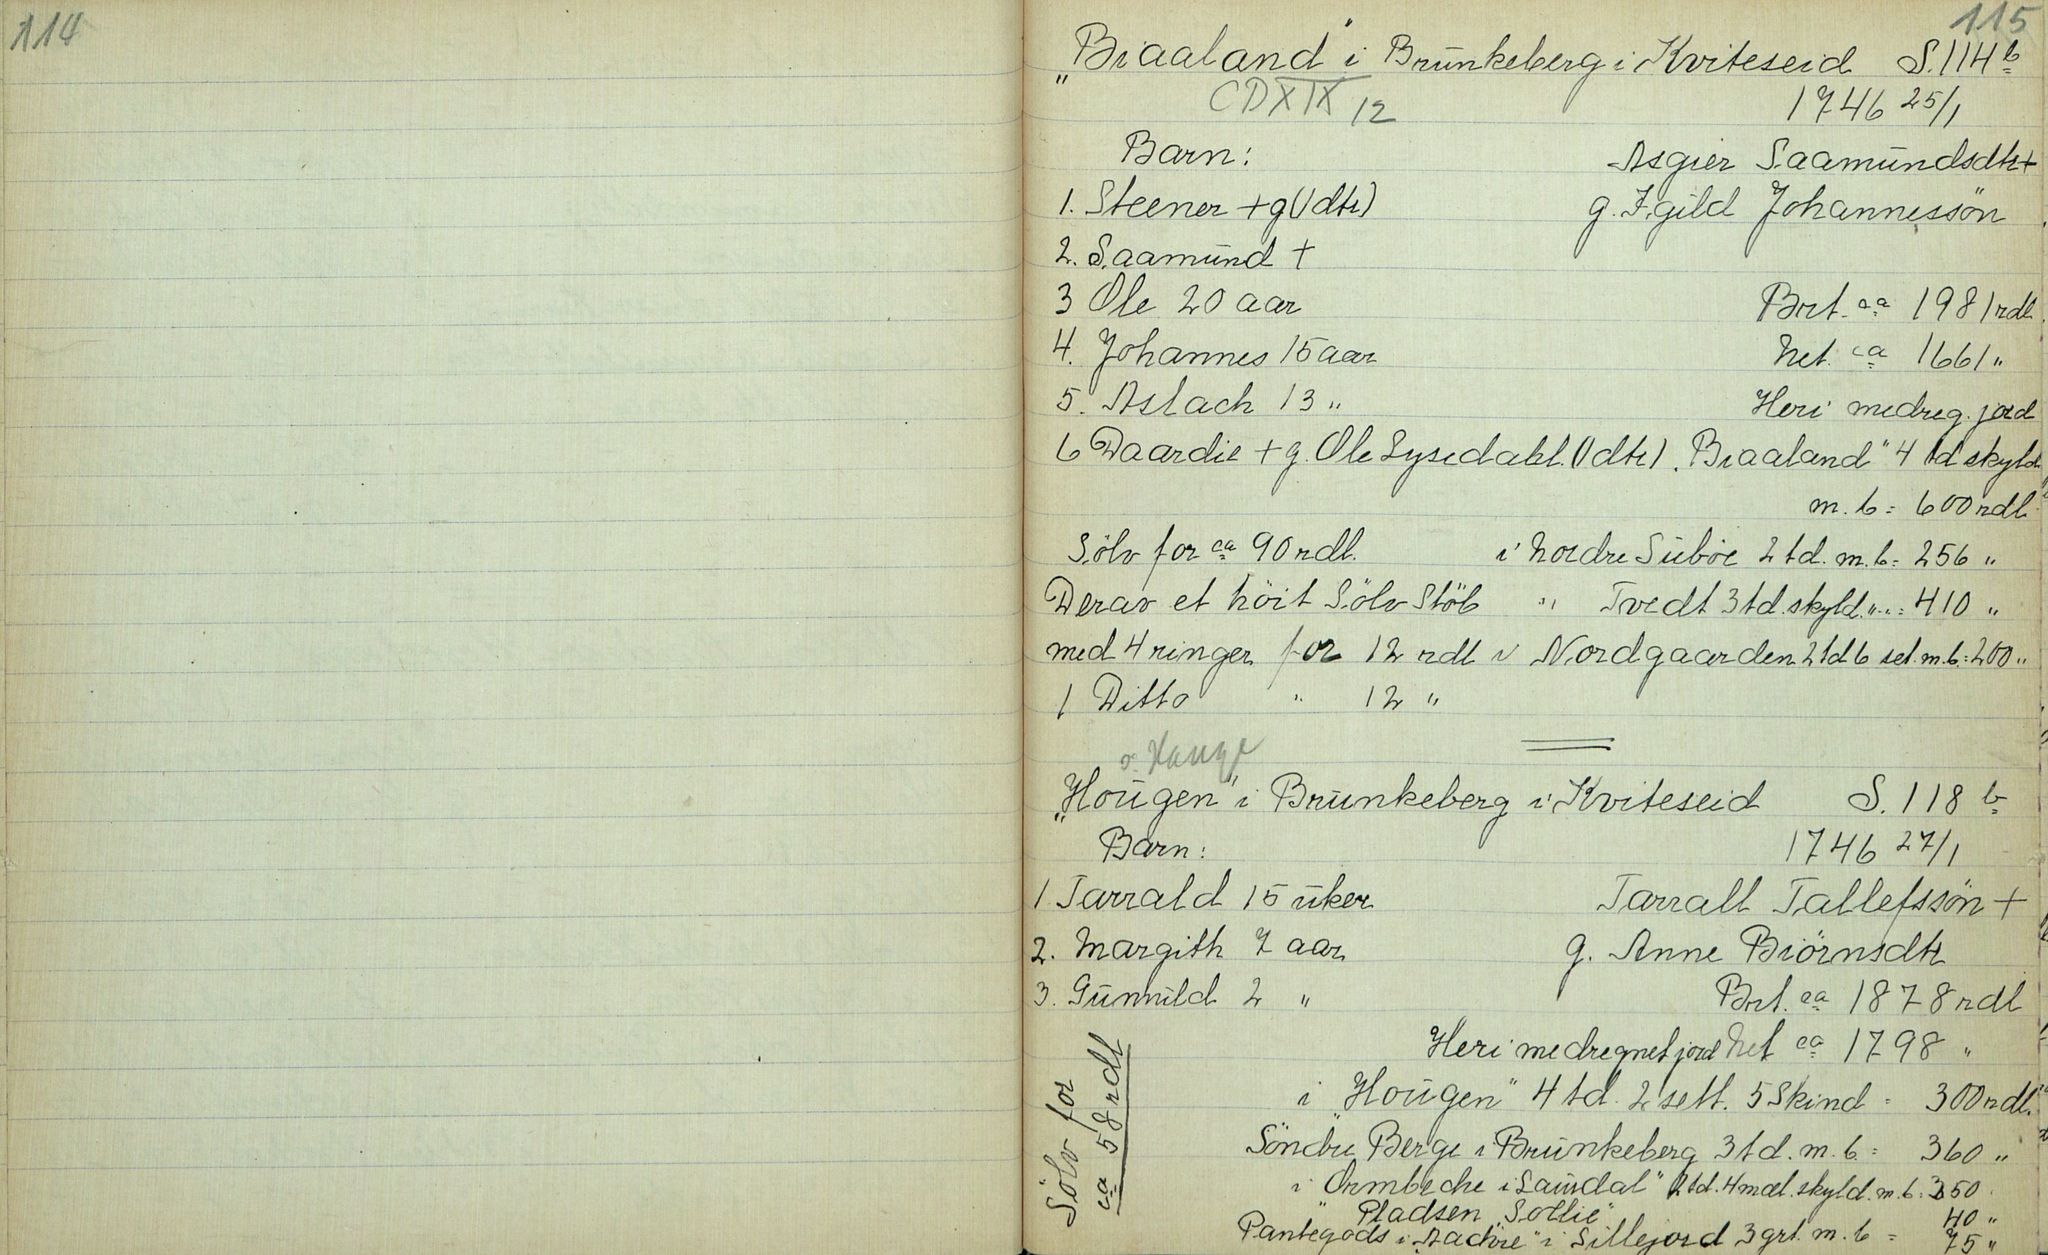 114
115
"Biaaland" i Brunkeberg i Kviteseid S. 114 b
CDXIX 12 1746 25/1
Barn: Asgier Saamundsdtr +
1. Steener + g (1 dtr) g. Egild Johannessön
2. Saamund +
3 Ole 20 aar Brt. ca 1981 rdl.
4. Johannes 15 aar Net. ca 1661 "
5. Aslach 13 " Heri medreg. jord
6 Daardie + g. Ole Lysedahl. (1 dtr) "Biaaland" 4 td skyld
m. b = 600 rdl.
Sölv for ca 90 rdl. i Nordre Suböe 2 td. m. b = 256 "
Derav et höit Sölv Stöb " Tvedt 3 td. skyld. " " = 410 "
med 4 ringer for 12 rdl i Nordgaarden 2 td 6 set. m. b. = 200 "
1 Ditto " 12 "
o. Hauge
"Hougen" i Brunkeberg i Kviteseid S. 118 b
Barn: 1746 27/1
1 Tarrald 15 uker Tarrall Tallefssön +
2. Margith 7 aar g. Anne Biörnsdtr
3. Gunnild 2 " Brt. ca 1878 rdl
Heri medregnet jord Net ca 1798 "
i "Hougen" 4 td. 2 sett. 5 Skind = 300 rdl.
Söndre Berge i Brunkeberg 3 td. m. b = 360 "
i "Ormbrche i Saundal" 2 td. 4 mæl. skyld. m. b = 350.
Pladsen "Sollie" 40 "
Pantegods i i Sillejord 3 grt. m. b = 75 "
Sölv for
ca 58 rdl